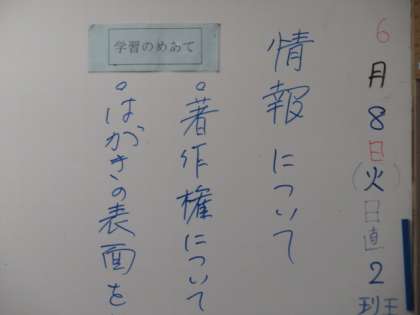 6月8日(火)日直2班
情報について
学習のめあて
。著作権について
。はがきの表面を